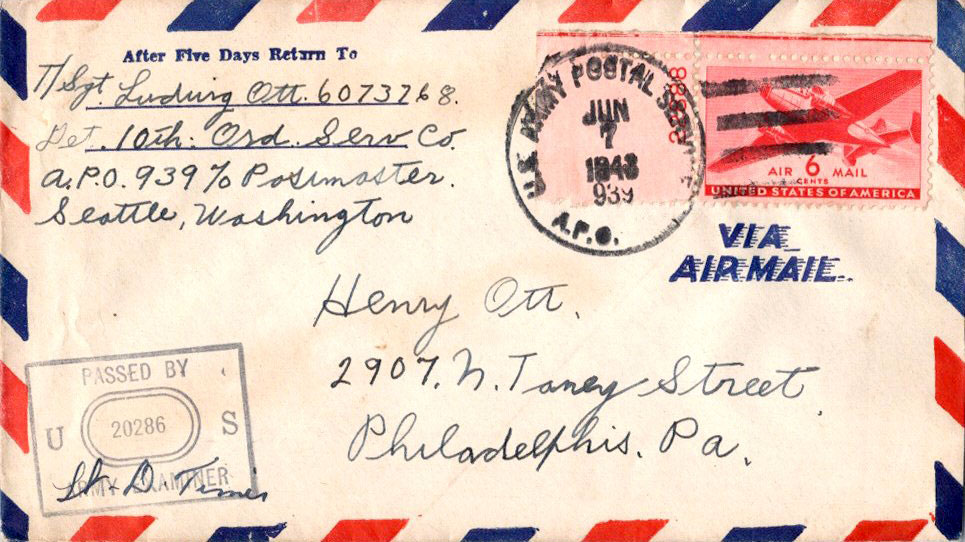 After Five Days Return To
T/Sgt. Ludwig Ott. 6073768.
Det. 10th. Ord. Serv Co.
A.P.O. 939 % Posimaster.
Seattle, Washington
U.S. ARMY POSTAL SERVICE
JUN
7
1943
939
A.P.O.
AIR 6 MAIL
CENTS
UNITED STATES OF AMERICA
VIA
AIR MAIL
Henry Ott.
2907. N. Taney Street,
Philadelphis. Pa.
PASSED BY
U 20286 S
ARMY EXAMINER